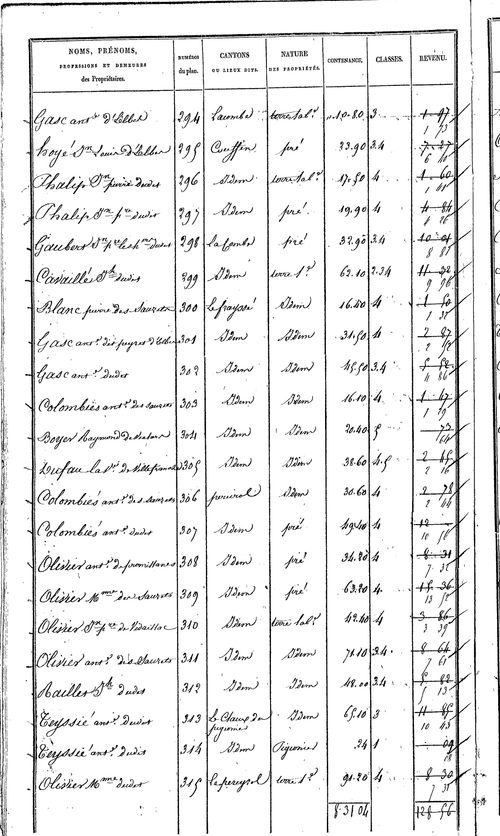 NOMS, PRÉNOMS, PROFESSIONS ET DEMEURES des Propriétaires. NUMÉROS du plan. CANTONS OU LIEUX DITS. NATURE DES PROPRIÉTÉS. CONTENANCE. CLASSES. REVENU.
Gasc antne d'Elbes 294 Lacombe terre labl 10.80 3 1 97
1 73
hoyé Jn Louis d'Elbes 295 Couffin pré 23.90 3.4 7 27
6 41
Phalip Jn pierre dudit 296 Idem terre labl 17.50 4 1 60
1 41
Phalip Jn pre dudit 297 Idem pré 19.90 4 4 84
Gaubert dudit 298 la Combe pré 32.90 3.4 10 01
8 81
Cavaillé Jh dudit 299 Idem terre l. 63.10 2.34 11 32
9 96
Blanc pierre des Sauzets 300 le frayssé Idem 16.40 4 1 50
Gasc ant. 301 Idem Idem 31.50 4 2 87
Gasc ant. dudit 302 Idem Idem 45.50 3.4 5 52
4 86
Colombiés ant. des Sauzets 303 Idem Idem 16.10 4 1 47
1 29
Boyer Raymond 304 Idem Idem 20.40 5 73
64
Dufau de Villefranche 305 Idem Idem 38.60 4.5 2 45
2 16
Colombiés ant. des Sauzets 306 Idem 30.60 4 2 78
2 44
Colombiés ant. dudit 307 Idem pré 49.40 4 12
10 56
Olivier ant. 308 Idem pré 34.20 4 8 31
7 31
Olivier des Sauzets 309 Idem pré 63.20 4 15 36
13 51
Olivier Jn pre de Vidaillac 310 Idem terre labl 42.40 4 3 86
3 39
Olivier ant. des Sauzets 311 Idem Idem 71.10 3.4 8 64
7 61
Railles Jh dudit 312 Idem Idem 48.00 3.4 5 82
5 13
Teyssié ant. dudit 313 le Claux du pigeonier Idem 65.10 3 11 85
10 43
Teyssié ant. dudit 314 Idem Pigeonier .24 1 09
08
Olivier dudit 315 terre l. 91.20 4 8 30
7 31
8.31 04 128 56